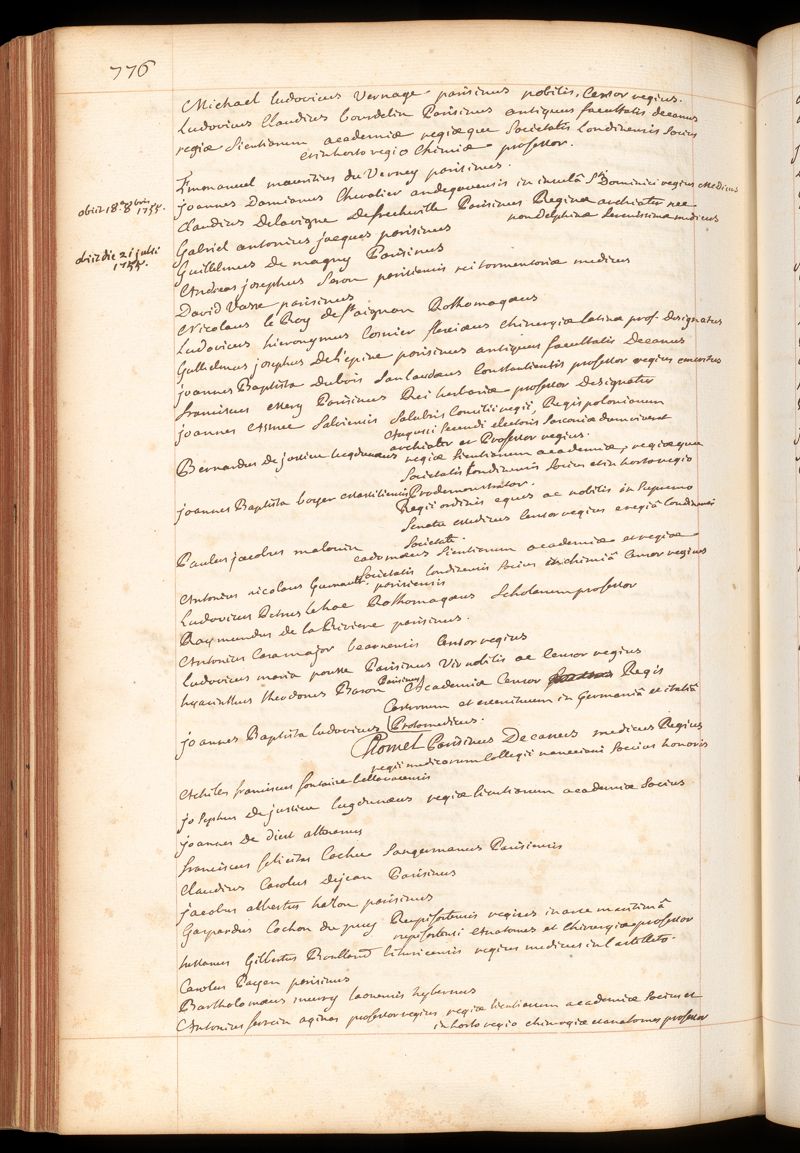 776
Michael Ludovicus Vernage parisinus nobilis, Censor regius.
Ludovicus Claudius bourdelin Parisinus antiquus facultatis decanus
regiæ scientiarum academiæ regiæque Societatis Londinensis Socius
et in horto regio Chimiæ professor.
Emmanuel mauritius du Verney parisinus.
obiit 18 8bris 1755.
joannes Damianus Chevalier andegavensis in insulâ Sti Dominici regius Medicus
Claudius Delavigne de frecheville Parisinus Reginæ archiater nec
non Delphinæ Serenissimæ medicus
Gabriel antonius jacques parisinus
obiit die 21 julii
1755.
Guillelmus De magny Parisinus
Andreas josephus Seron parisiensis rei tormentariæ medicus
David Vasse parisinus
Nicolaus le Roy de St aignan Rothomagæus
Ludovicus hieronymus Cosnier flexiæus Chirurgiæ latinæ prof. Designatus
Guillelmus josephus De l'epine parisinus antiquus facultatis Decanus
joannes Baptista Dubois Sanlaudæus Constantiensis professor regius emeritus
franciscus Mery Parisinus Rei herbariæ professor Designatus
joannes Salviensis Salubris Consilii regii, Regis poloniarum
Augusti Secundi electoris Saxoniæ dum viveret
archiater et Professor regius.
Bernardus de jussieu lugdunæus regiæ scientiarum academiæ, regiæque
Societatis Londinensis Socius et in horto regio
Prodemonstrator.
joannes Baptista boyer Massiliensis Regii ordinis eques ac nobilis in Supremo
Senatu Medicus Censor regius e regiâ Londinensi
Societate.
Paulus jacobus malouin cadomæus Scientiarum academiæ et regiæ
Societatis Londinensis Socius in chimiâ Censor regius
Antonius nicolaus Guenault parisiensis
Ludovicus Petrus le hoc Rothomagæus Scholarum professor
Raymundus de la Riviere parisinus.
Antonius Casamajor bearnensis Censor regius
Ludovicus maria pousse Parisinus Vir nobilis ac Censor regius
hyacinthus theodorus Baron Parisinus Academiæ Censor Regis
Castrorum et exercituum in Germaniâ et italiâ
Protomedicus.
joannes Baptista Ludovicus Chomel Parisinus Decanus medicus Regius
regii medicorum Collegii nanceiani Socius honoris
Achilles franciscus fontaine bellovacensis
josephus de jussieu lugdunæus regiæ scientiarum academiæ Socius
joannes De Diest
franciscus felicitas Cochu Sangermanus Parisiensis
Claudius Carolus Dejean Parisinus
jacobus albertus hazon parisinus
Gaspardus Cochon du puy Rupifortensis regius in arce maritimâ
rupifortensi Anatomes et Chirurgiæ professor
Gilbertus bituricensis regius medicus in Castelleto.
Carolus Payen parisinus
Bartholomæus murry laonensis hybernus
Antonius ferrein aginas professor regius regiæ scientiarum academiæ Socius et
in horto regio chirurgiæ et anatomes professor